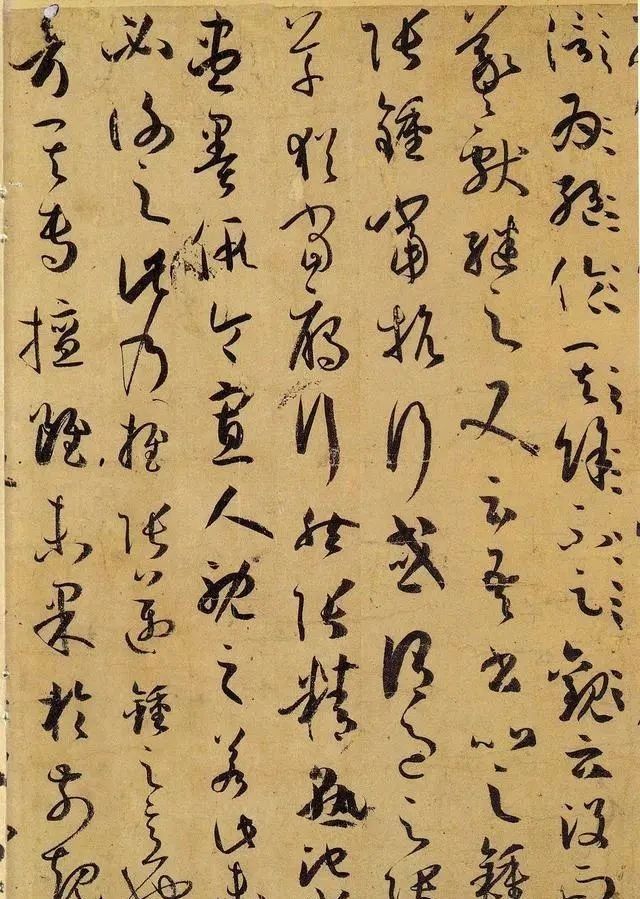 為絕倫其餘不足觀云沒而
羲獻繼之又云吾書比之鍾
張鍾當抗行或謂過之張
草猶當雁行然張精熟池水
盡墨假令寡人耽之若此未
必謝之此乃推張邁鍾之意也
考其專擅雖未果於前規